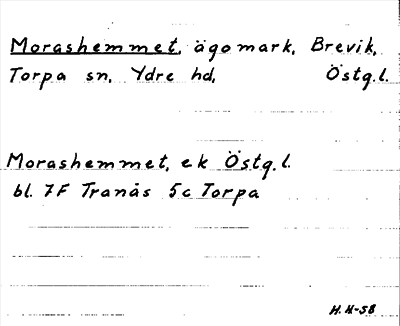 Morashemmet, ägomark, Brevik,
Torpa sn, Ydre hd, Östg.l.
Morashemmet, ek Östg.l.
bl. 7F Tranås 5c Torpa
H.H-58